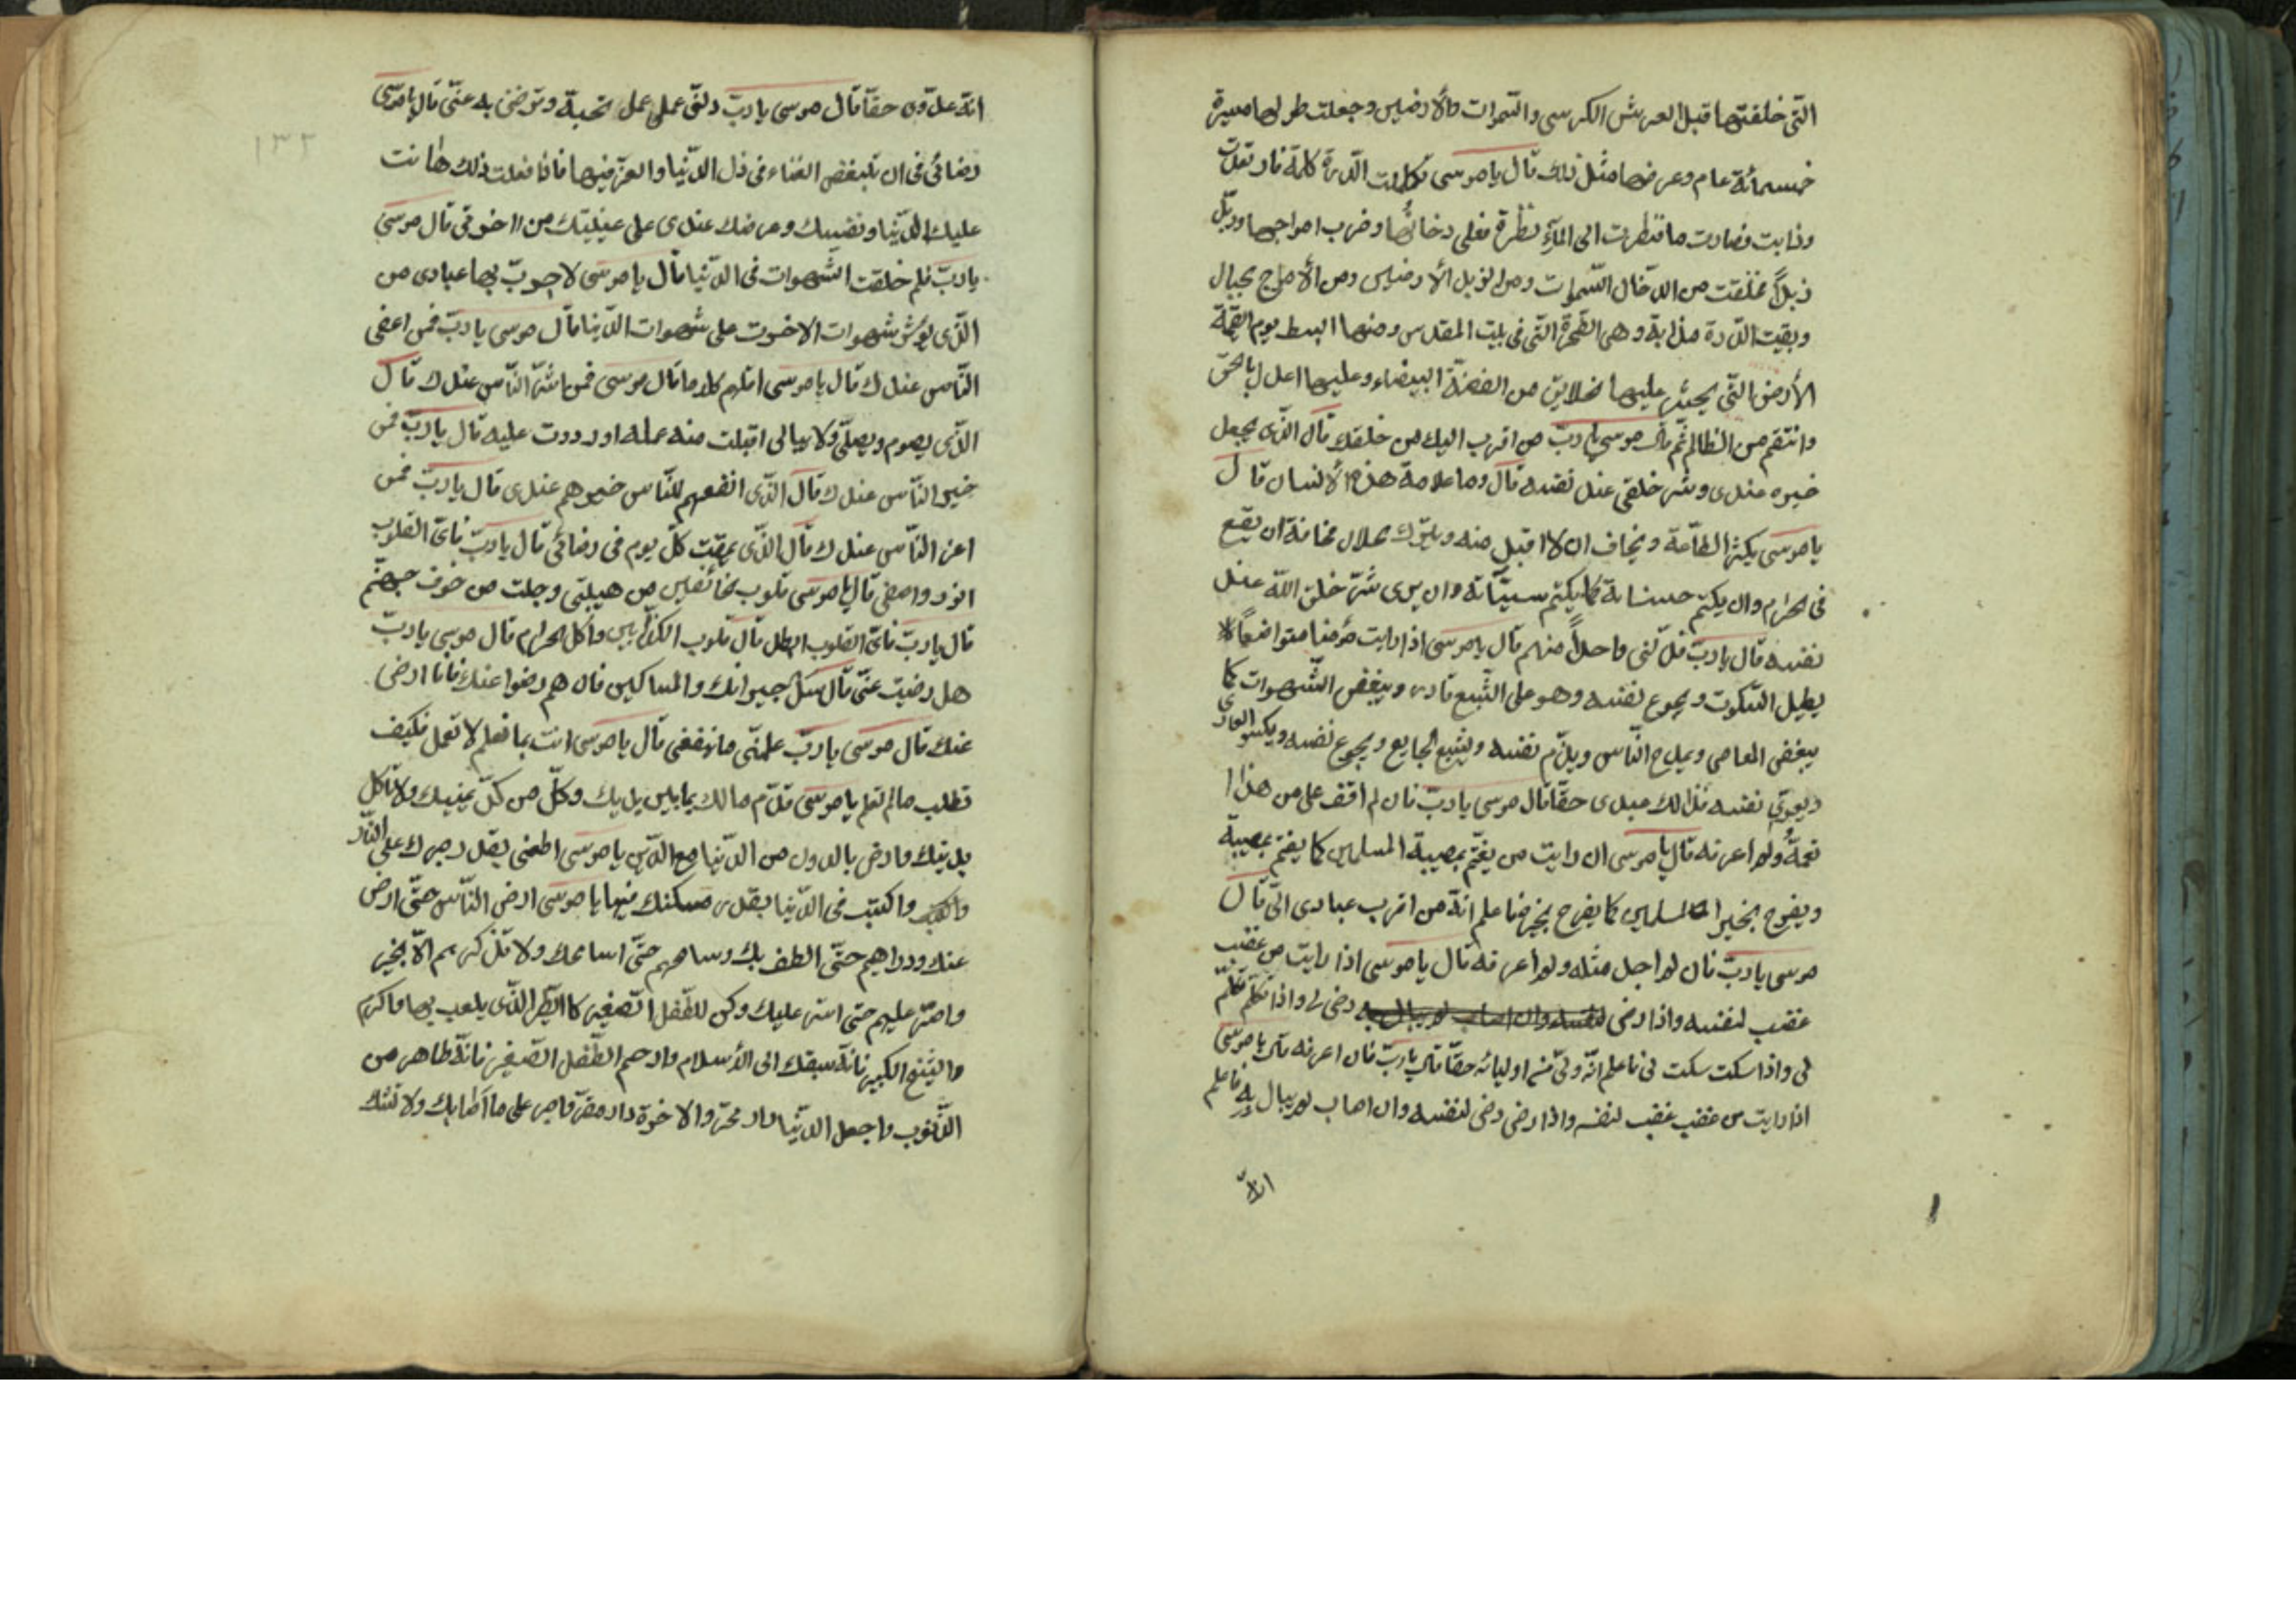 التّى خلقتها قبل العرش الكرسى والسّموات والأرضين وجعلت طولها مسيرة
خمسمائة عام وعرضها مثل ذلك قال يا موسى تكلمت الدّرة كلمة فارتعدت
وذابت فصارت ما فنظرت الى المآء نظرة فعلى دخانها وضرب امواجها وزبّل
زبلاً فخلقت من الدّخان السّموات ومن الزبل الأرضين ومن الأمواج الجبال
وبقيت الدّرة مذابة وهى الصّخرة التّى فى بيت المقدس ومنها ابسط يوم القيمة
الأرض التّى يحشر عليها الخلايق من الفضّة البيضاء وعليها اعدل بالحقّ
وانتقم من الظالم ثم قال موسى يا ربّ من اقرب اليك من خلقك قال الذّى يجعل
خيره عندى وشر خلقى عند نفسه قال وما علامة هذا الأنسان قال
يا موسى يكثر الطّاعة ويخاف ان لا اقبل منه ويترك حلال مخافة ان يقع
فى الحرام وان يكتم حسناته كما يكتم سيّئاته وان يرى شرّ خلق اللّه عند
نفسه قال يا ربّ فدلّنى واحداً منهم قال يا موسى اذا رايت مؤمنا متواضعاً
يطيل السّكوت ويجوع نفسه وهو على الشّبع قادر ويبغض الشّهوات كما
يبغض المعاصى ويمدح النّاس ويذمّ نفسه ويشبع الجايع ويجوع نفسه ويكسو العارى
ويعرّى نفسه فذالك عبدى حقّا قال موسى يا ربّ فان لم اقف على من هذا
نعمةٌ ولم اعرفه قال يا موسى ان رايت من يغتم بمصيبة المسلمين كما يغتم بمصيبة
ويفرح بخير المسلمين كما يفرح بخيره فاعلم انّه من اقرب عبادى الىّ قال
موسى يا ربّ فان لم اجد مثله ولم اعرفه قال يا موسى اذا رايت من غضب
غضب لنفسه واذا رضى رضى لى واذا تكلّم تكلّم
لى واذا سكت سكت لى فاعلم انّه ولىّ من اوليائه حقّا قال يا ربّ فان اعرفه قال يا موسى
اذا رايت من غضب غضب لنفسه واذا رضى رضى لنفسه وان اصاب لم يبال به فاعلم
انّه
١٣٢
انّه عدوّى حقّاً قال موسى يا ربّ دلنى على عمل تحبه وترضى به عنّى قال يا موسى
رضائى فى ان تبغض الغناء فى ذل الدّنيا والعزّ فيها فاذا فعلت ذلك هانت
عليك الدّنيا ونصيبك عندى على من الاخرة قال موسى
يا ربّ فلم خلقت الشّهوات فى الدّنيا قال يا موسى لاجرب بها عبادى من
الذّى يؤثر شهوات الاخرة على شهوات الدّنيا قال موسى يا ربّ فمن اعفى
النّاس عندك قال يا موسى اقلهم كلاما قال موسى فمن اشرّ النّاس عندك قال
الذّى يصوم ويصلّى ولا يبالى اقبلت منه عمله او رددت عليه قال يا ربّ فمن
خير النّاس عندك قال الذّى انفعهم للنّاس خيرهم عندى قال يا ربّ فمن
اعز النّاس عندك قال الذّى يمقت كلّ يوم فى رضائى قال يا ربّ فاىّ القلوب
انور واصفى قال يا موسى قلوب خائفين من هيبتى وجلت من خوف جهنّم
قال يا ربّ فاىّ القلوب قال قلوب الكذّابين واكل الحرام قال موسى يا ربّ
هل رضيت عنّى قال سئل جيرانك والمساكين فان هم رضوا عنك فانا ارضى
عنك قال موسى يا ربّ علمنى ما ينفعنى قال يا موسى انت بما تعلم لا تعمل فكيف
تطلب ما لم تعلم يا موسى قدّم مالك بما بين يديك وكلّ من كدّ يمينك ولا تاكل
بدينك وارض بالدون من الدّنيا مع الدّين يا موسى اطعنى بقدر صبرك على النّار
واكتب فى الدّنيا بقدر مسكنك فيها يا موسى ارض النّاس حتّى ارض
عنك ودراهم حتّى الطف بك وسامحهم حتّى اسامحك ولا تذكرهم الاّ بخير
واستر عليهم حتى استر عليك وكن للطّفل الصّغير كالطّير الذّى يلعب بها واكرم
والشّيخ الكبير فانّه سبقك الى الأسلام وارحم الطّفل الصّغير فانّه طاهر من
الذّنوب واجعل الدّنيا دار ممرّ والاخرة دار مقرّ واصبر على ما اصابك ولا تشك